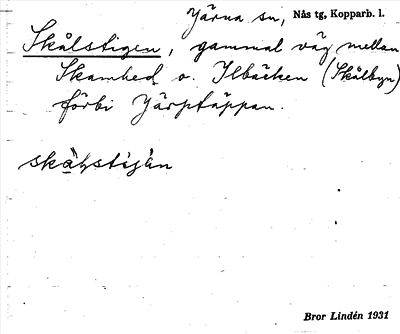 Järna sn, Nås tg, Kopparb. l.
Skålstigen, gammal väg mellan
Skamhed o. Ilbäcken (Skålbyn)
förbi Järptäppan.
skàḷstíjàn
Bror Lindén 1931